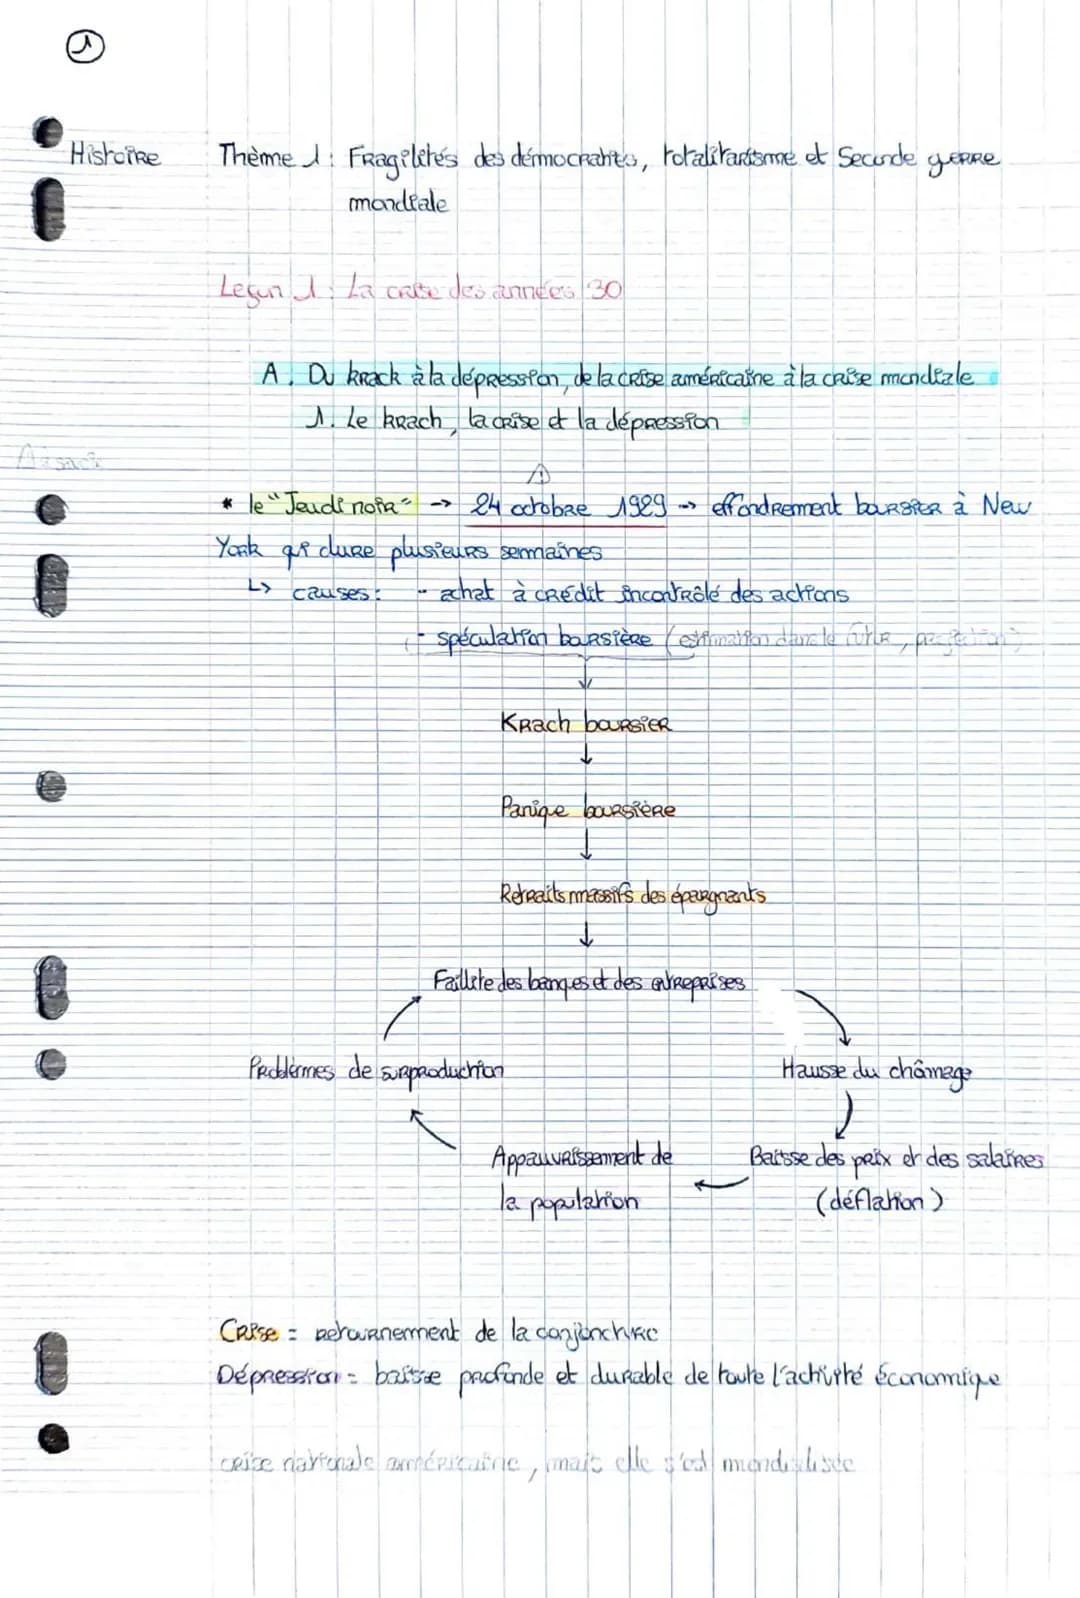 1
Histoire
Thème 1 : Fragilités des démocraties, totalitarisme et Seconde guerre
mondiale
Leçon 1 : La crise des années 30
A. Du krack à la dépression, de la crise américaine à la crise mondiale
1. Le krach, la crise et la dépression
* le "Jeudi noir" → 24 octobre 1929 → effondrement boursier à New
York qui dure plusieurs semaines
↳ causes : - achat à crédit incontrôlé des actions
- spéculation boursière (estimation dans le futur, projection)
↓
Krach boursier
↓
Panique boursière
↓
Retraits massifs des épargnants
↓
Faillite des banques et des entreprises
Problèmes de surproduction Hausse du chômage
Appauvrissement de Baisse des prix et des salaires
la population (déflation)
Crise = retournement de la conjoncture
Dépression = baisse profonde et durable de toute l'activité économique
crise nationale américaine, mais elle s'est mondialisée